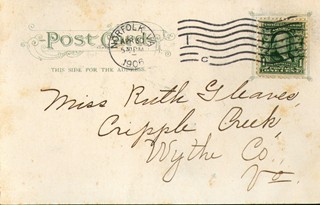 Post Card
THIS SIDE FOR THE ADDRESS.
NORFOLK, VA.
1906
1
C
Miss Ruth Gleaves,
Cripple Creek,
Wythe Co,
Va.